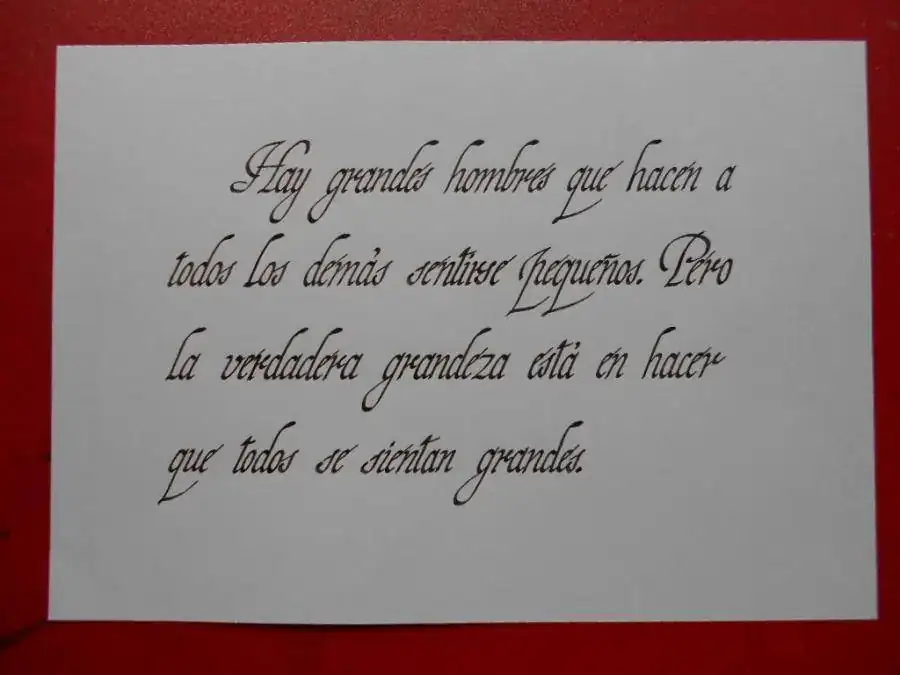 Hay grandes hombres que hacen a
todos los demás sentirse pequeños. Pero
la verdadera grandeza está en hacer
que todos se sientan grandes.